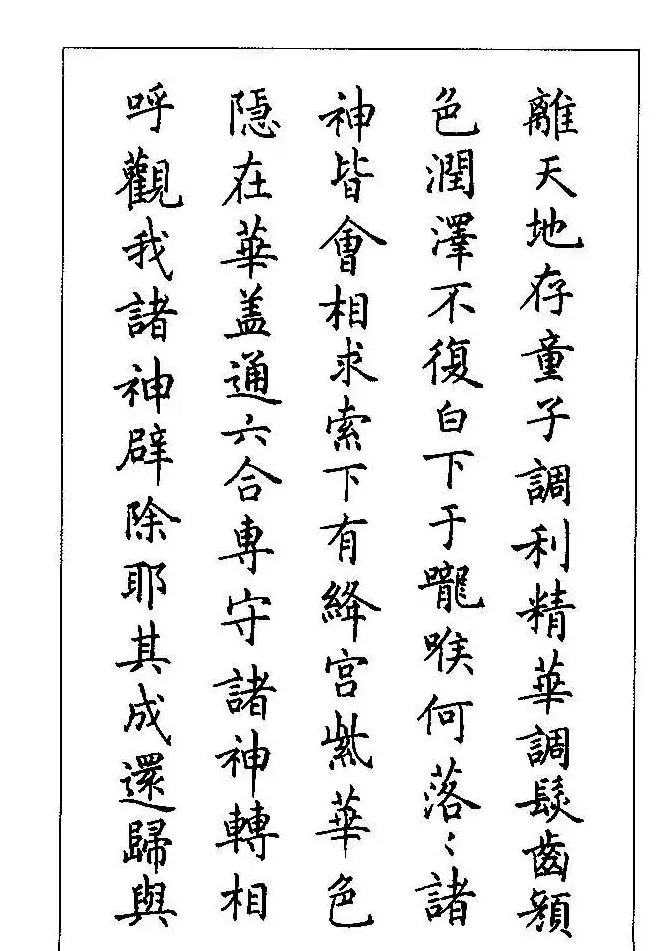 離天地存童子調利精華調髮齒顏
色潤澤不復白下于嚨喉何落〻諸
神皆會相求索下有絳宮紫華色
隱在華盖通六合專守諸神轉相
呼觀我諸神辟除耶其成還歸與